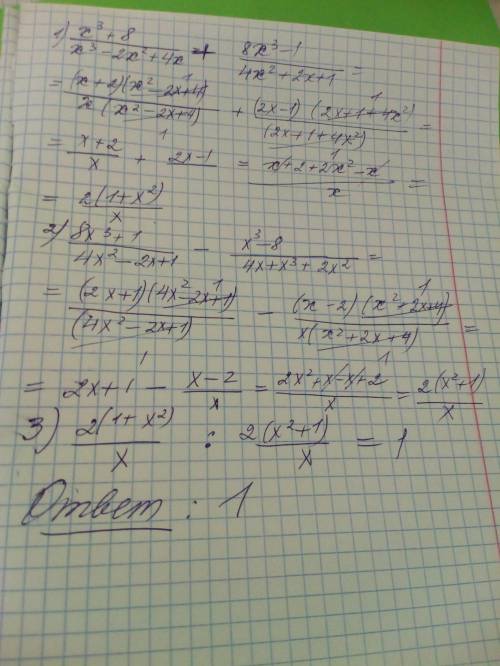 1) (x³+8)/(x³-2x²+4x) + (8x³-1)/(4x²+2x+1) =
= (x+2)(x²-2x+4)/(x(x²-2x+4)) + (2x-1)(2x+1+4x²)/(2x+1+4x²) =
= (x+2)/x + (2x-1)/1 = (x+2+2x²-x)/x =
= 2(1+x²)/x
2) (8x³+1)/(4x²-2x+1) - (x³-8)/(4x+x³+2x²) =
= (2x+1)(4x²-2x+1)/(4x²-2x+1) - (x-2)(x²+2x+4)/(x(x²+2x+4)) =
= 2x+1 - (x-2)/x = (2x²+x-x+2)/x = 2(x²+1)/x
3) 2(1+x²)/x : 2(x²+1)/x = 1
Ответ: 1